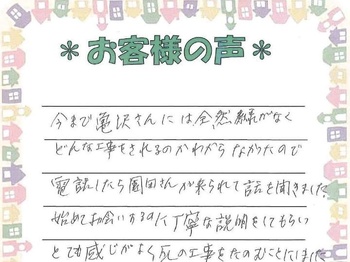 ＊お客様の声＊
今まで亀沢さんには全然縁がなく
どんな工事をされるのかわからなかったので
電話したら園田さんが来られて話を聞きました
始めてお会いするのに丁寧な説明をしてもらい
とても感じがよく の工事をたのむことにしました